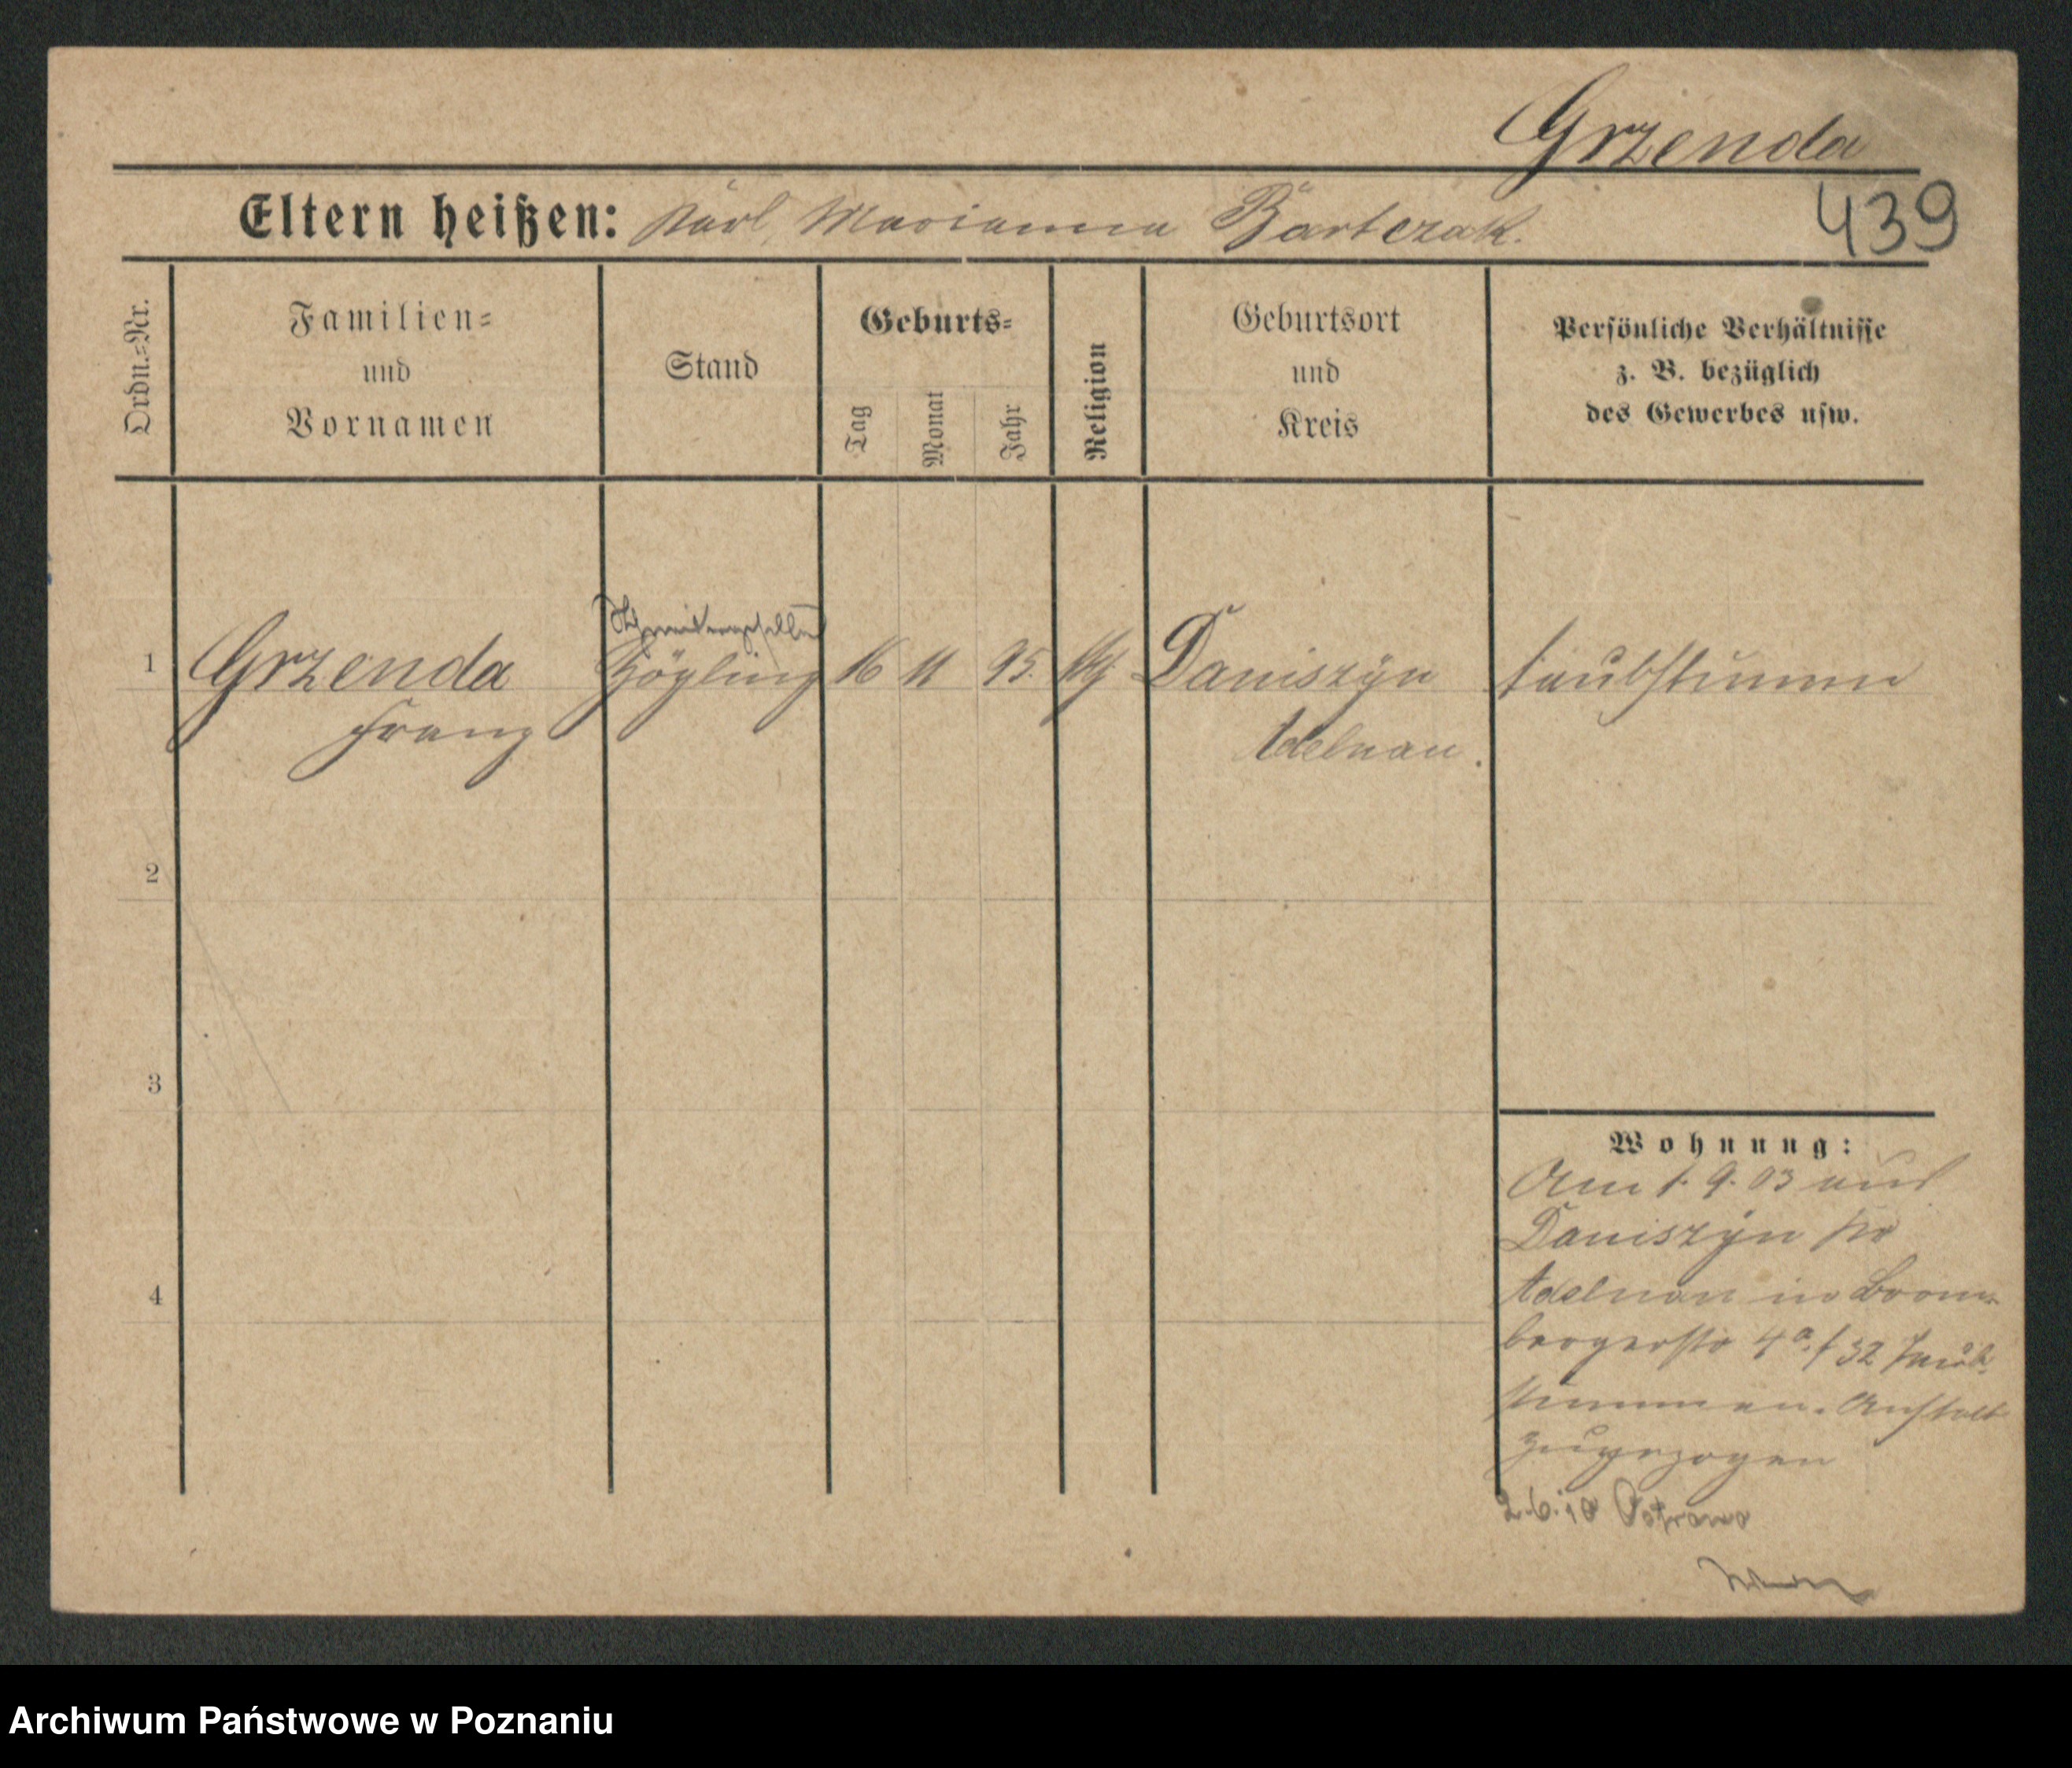 Grzenda
439
Eltern heißen: Karl, Marianna Bartczak.
Ordn.-Nr.
Familien-
und
Vornamen
Stand
Geburts-
Tag
Monat
Jahr
Religion
Geburtsort
und
Kreis
Persönliche Verhältnisse
z. B. bezüglich
des Gewerbes usw.
1
Grzenda
Franz
Zögling
16
11
95.
Daniszyn
Adelnau.
taubstumm
2
3
4
Wohnung:
Am 1. 9. 03 aus
Daniszyn Kr
Adelnau in Brom-
bergerstr 4a/32 Taub-
stummen-Anstalt
zugezogen
2.6.10 Ostrowo
Archiwum Państwowe w Poznaniu